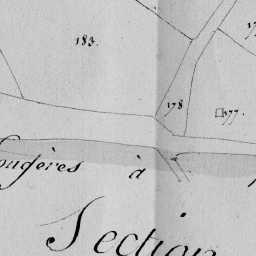 183.
178
177.
ougères à
Section